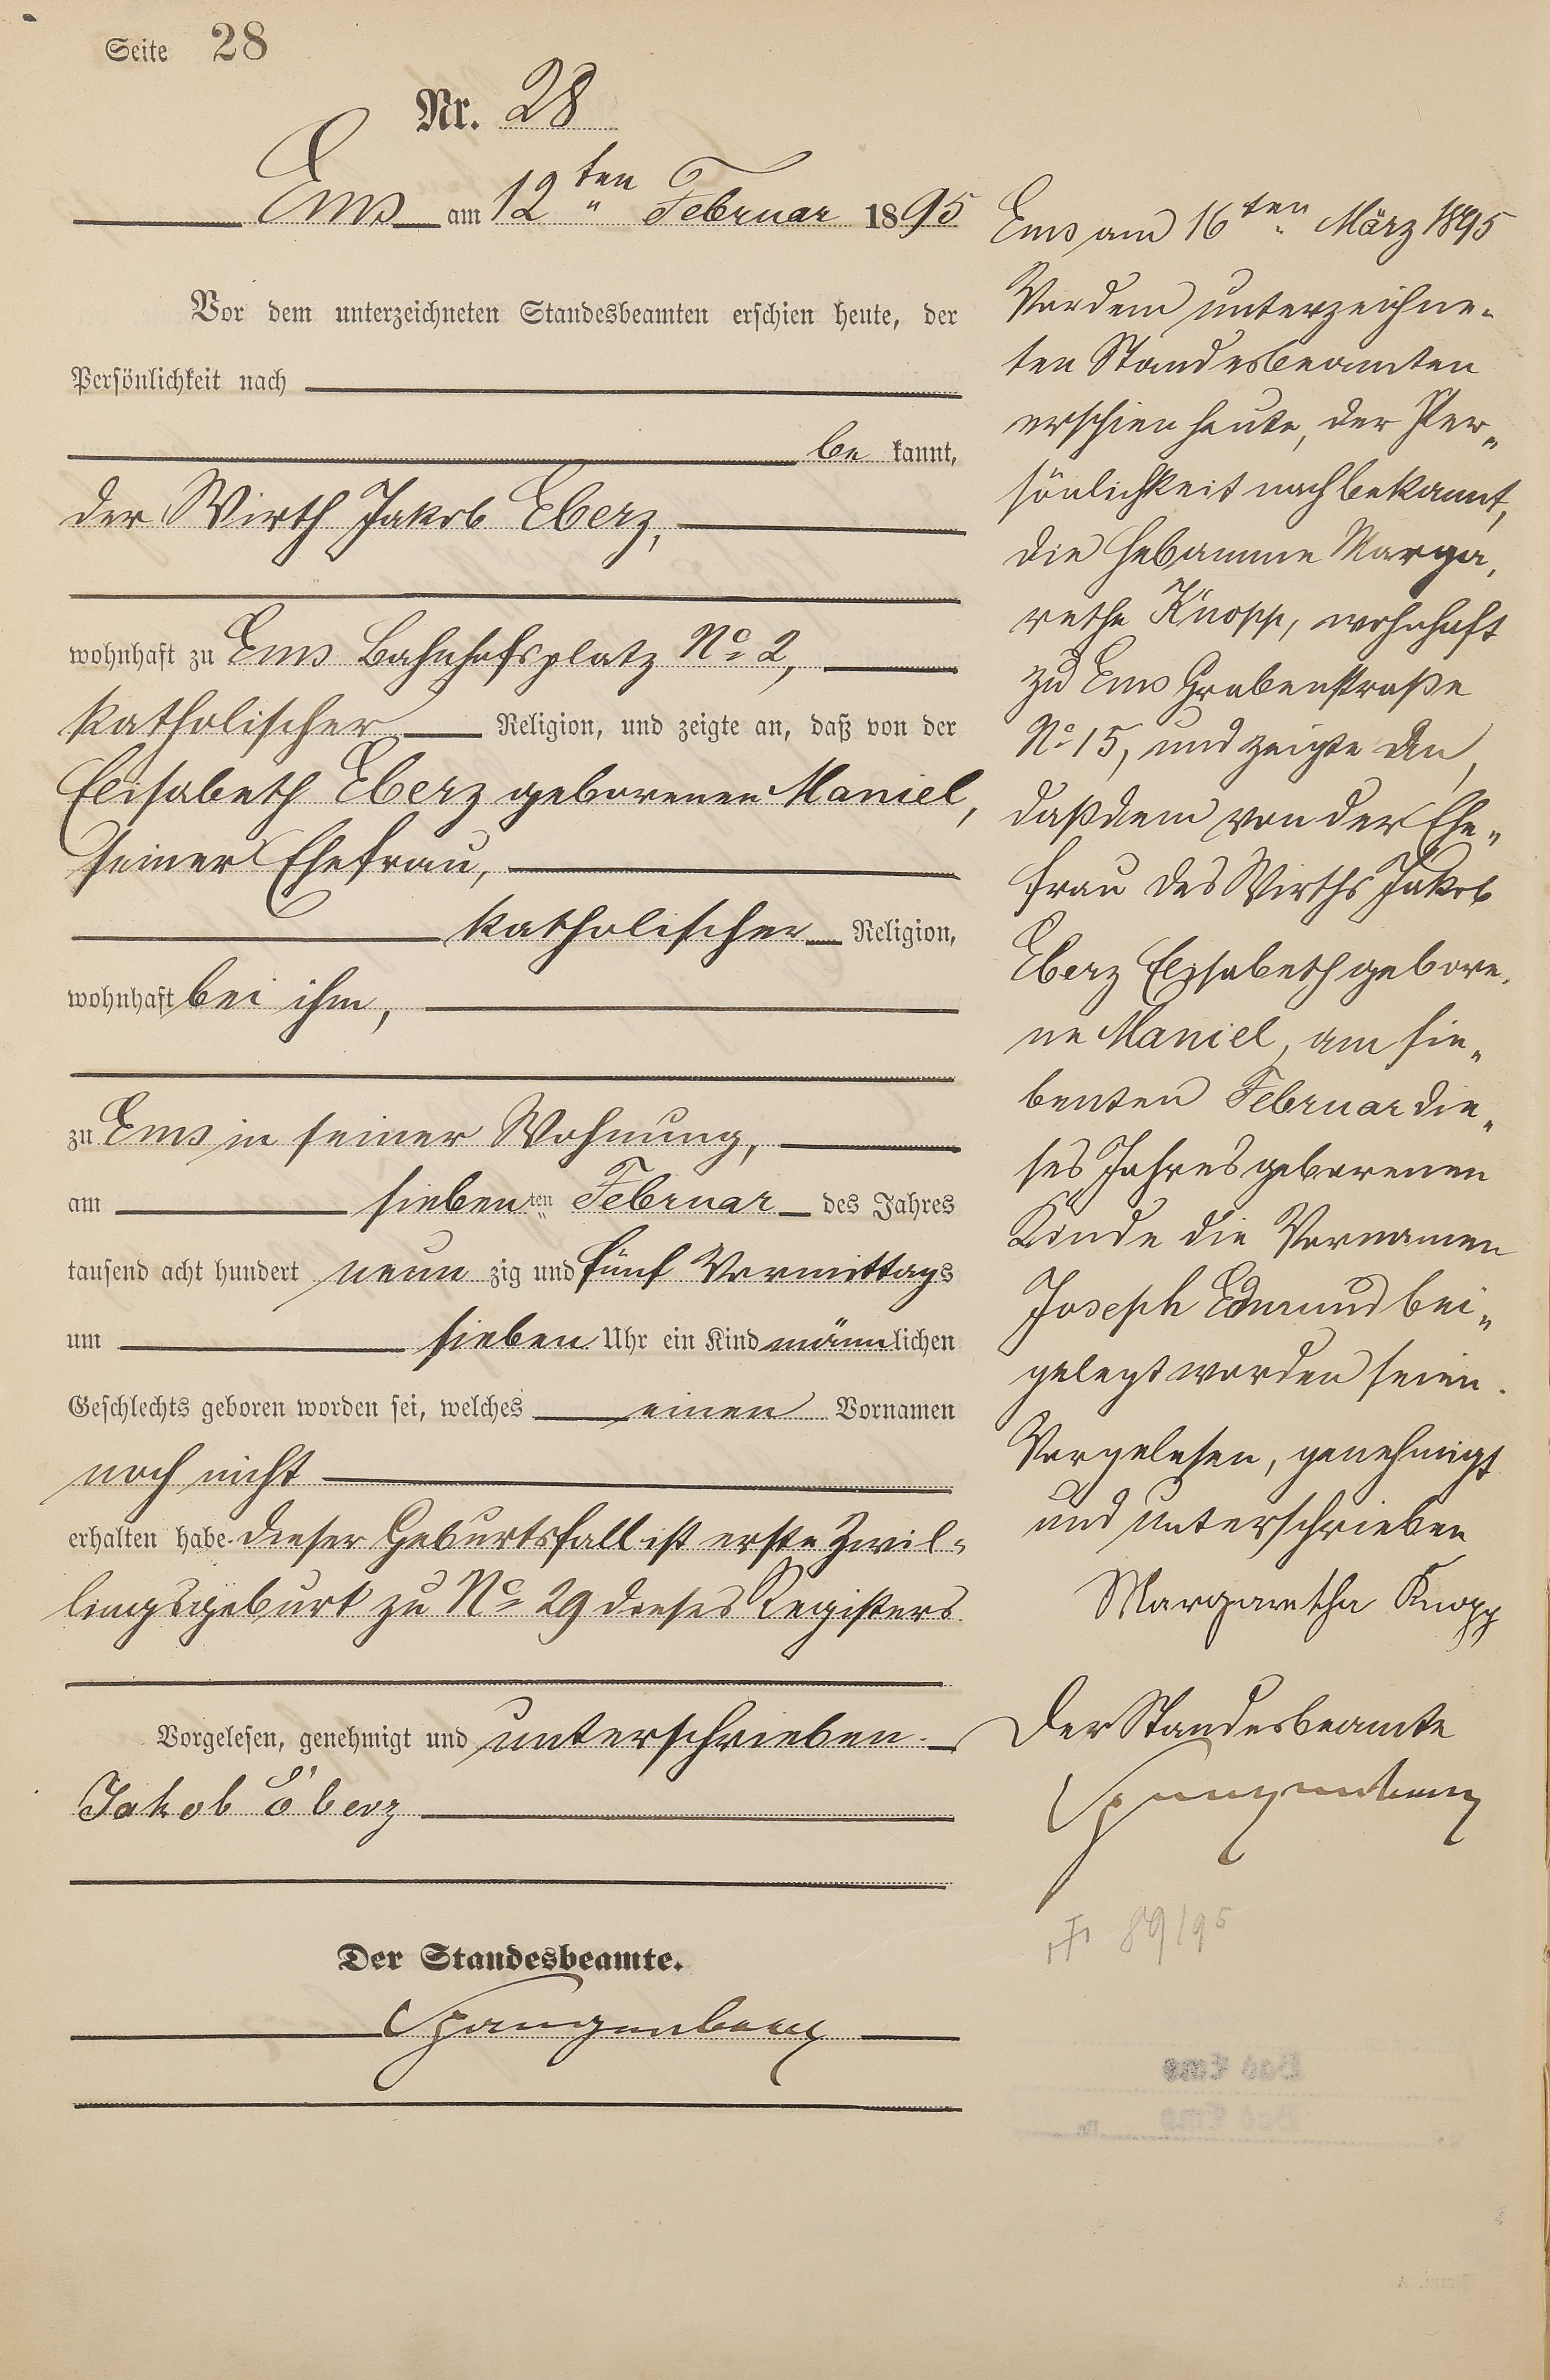 Seite 28
Nr. 28
Ems am 12ten Februar 1895
Vor dem unterzeichneten Standesbeamten erschien heute, der
Persönlichkeit nach
be kannt,
der Wirth Jakob Eberz,
wohnhaft zu Ems Bahnhofsplatz No 2,
katholischer Religion, und zeigte an, daß von der
Elisabeth Eberz geborenen Maniel,
seiner Ehefrau,
katholischer Religion,
wohnhaft bei ihm,
zu Ems in seiner Wohnung,
am siebenten Februar des Jahres
tausend acht hundert neun zig und fünf Vormittags
um sieben Uhr ein Kind männlichen
Geschlechts geboren worden sei, welches einen Vornamen
noch nicht
erhalten habe. Dieser Geburtsfall ist erste Zwil-
lingsgeburt zu No 29 dieses Registers.
Vorgelesen, genehmigt und unterschrieben.
Jakob Eberz
Der Standesbeamte.
Spangenberg
Ems am 16ten März 1895
Vor dem unterzeichne-
ten Standesbeamten
erschien heute, der Per-
sönlichkeit nach bekannt,
die Hebamme Marga-
rethe Knopp, wohnhaft
zu Ems Grabenstraße
No 15, und zeigte an,
daß dem von der Ehe-
frau des Wirths Jakob
Eberz Elisabeth gebore-
ne Maniel, am sie-
benten Februar die-
ses Jahres geborenen
Kinde die Vornamen
Joseph Edmund bei-
gelegt worden seien.
Vorgelesen, genehmigt
und unterschrieben
Margaretha Knopp
Der Standesbeamte
Spangenberg
89/95